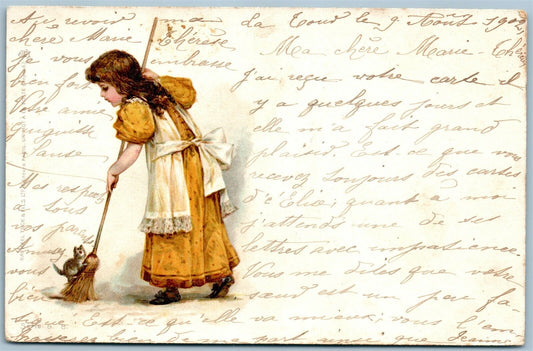 La Tour le 9 Août 1902
Ma chère Marie-Thérèse
J'ai reçu votre carte il
y a quelques jours et
elle m'a fait grand
plaisir. Est-ce que vous
recevez toujours des cartes
d'Elise; quant à moi
j'attends une de ses
lettres avec impatience.
Vous me dites que votre
sœur est un peu fa-
tiguée. Est-ce qu'elle va mieux; vous l'em-
bien de ma part ainsi que Jeanne
Au revoir ma
chère Marie Thérèse
Je vous embrasse
bien fort
Votre amie
Mes respects
à tous
vos parents